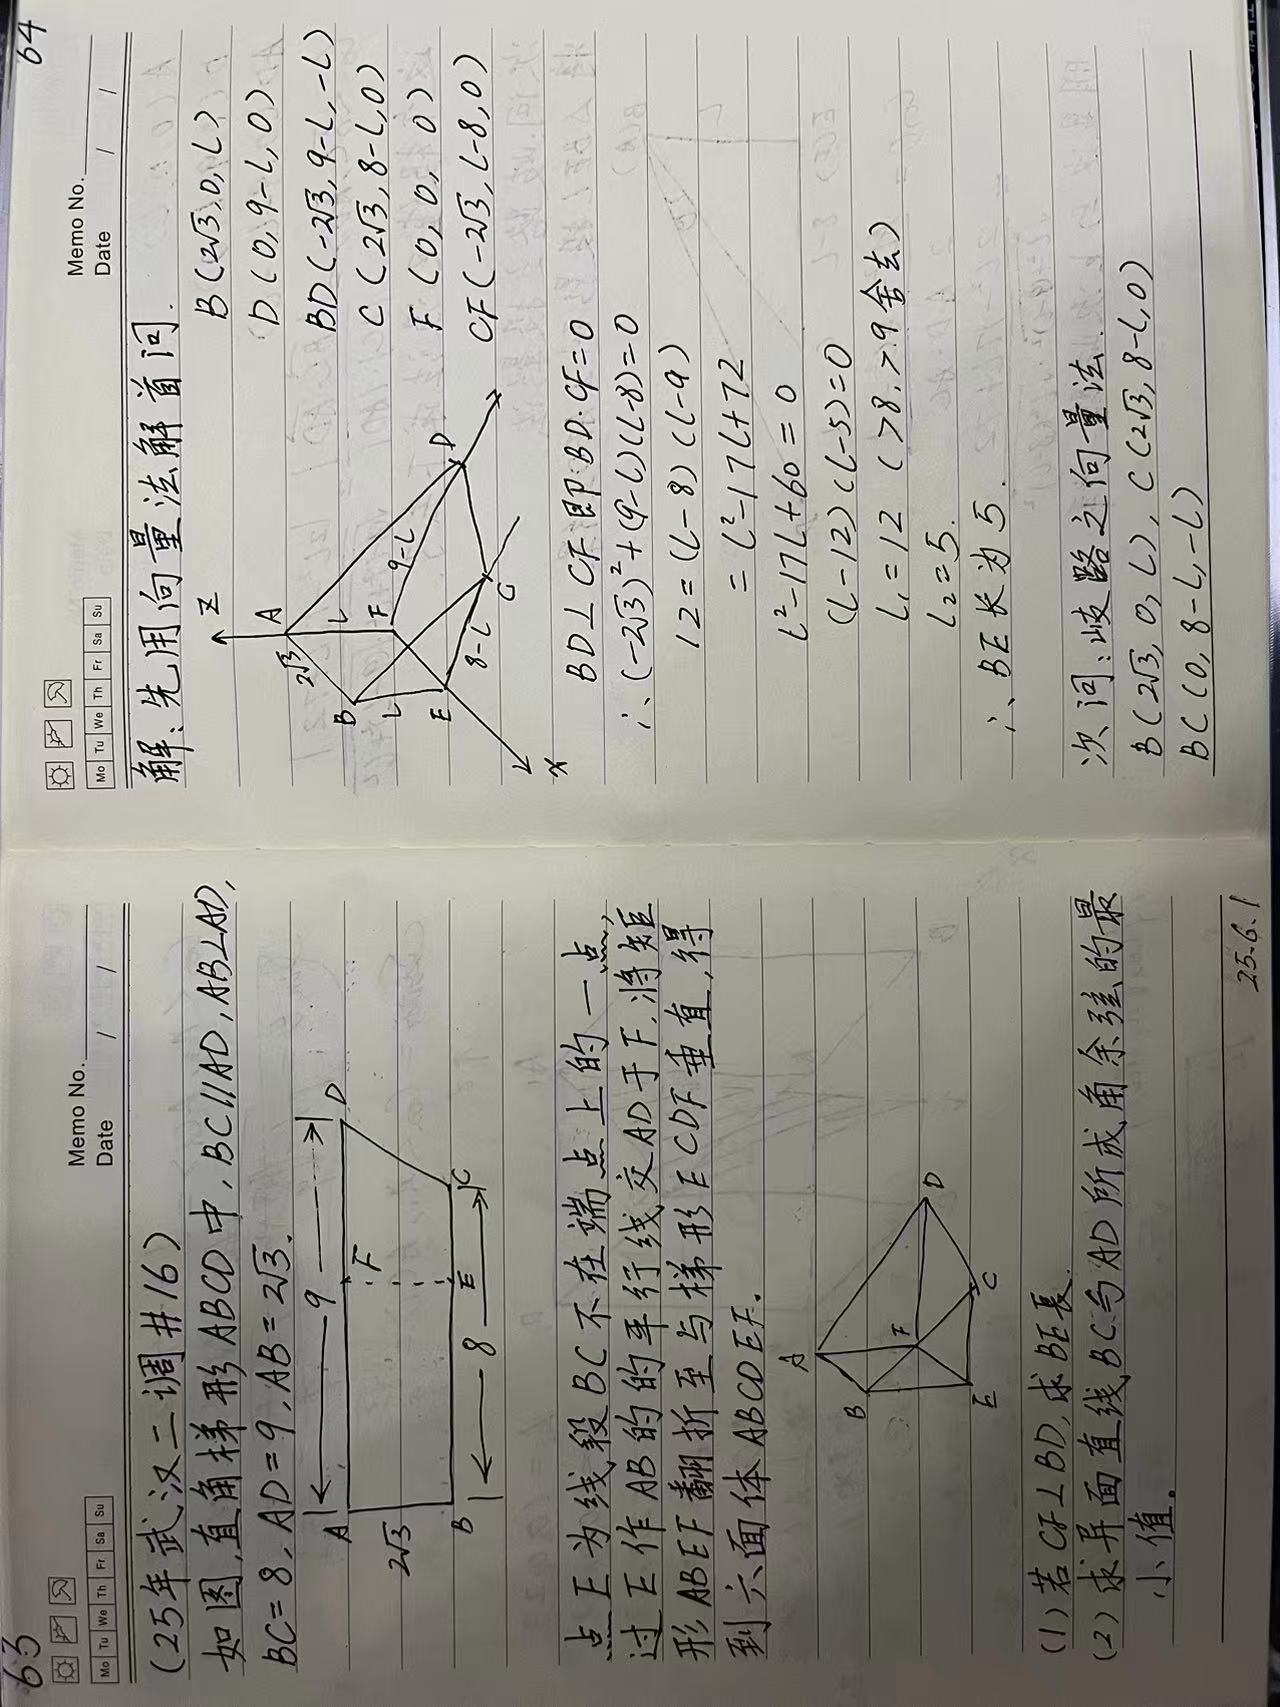 63
Mo Tu We Th Fr Sa Su
Memo No.
Date / /
(25年武汉二调#16)
如图,直角梯形ABCD中,BC//AD,AB⊥AD,
BC=8,AD=9,AB=2√3.
9
A
F
D
2√3
B
E
C
8
点E为线段BC不在端点上的一点,
过E作AB的的平行线交AD于F.将矩
形ABEF翻折至与梯形ECDF垂直,得
到六面体ABCDEF.
A
B
F
D
E
C
(1)若CF⊥BD,求BE長.
(2)求异面直线BC与AD所成角余弦的最
小值.
25.6.1
64
Mo Tu We Th Fr Sa Su
Memo No.
Date / /
解:先用向量法解首问.
Z
A
2√3
B
L
L
F
9-L
D
E
8-L
C
x
B(2√3,0,L)
D(0,9-L,0)
BD(-2√3,9-L,-L)
C(2√3,8-L,0)
F(0,0,0)
CF(-2√3,L-8,0)
BD⊥CF即BD·CF=0
∴(-2√3)²+(9-L)(L-8)=0
12=(L-8)(L-9)
=L²-17L+72
L²-17L+60=0
(L-12)(L-5)=0
L₁=12(>8,>9舍去)
L₂=5.
∴BE长为5.
次问:歧路之向量法.
B(2√3,0,L),C(2√3,8-L,0)
BC(0,8-L,-L)